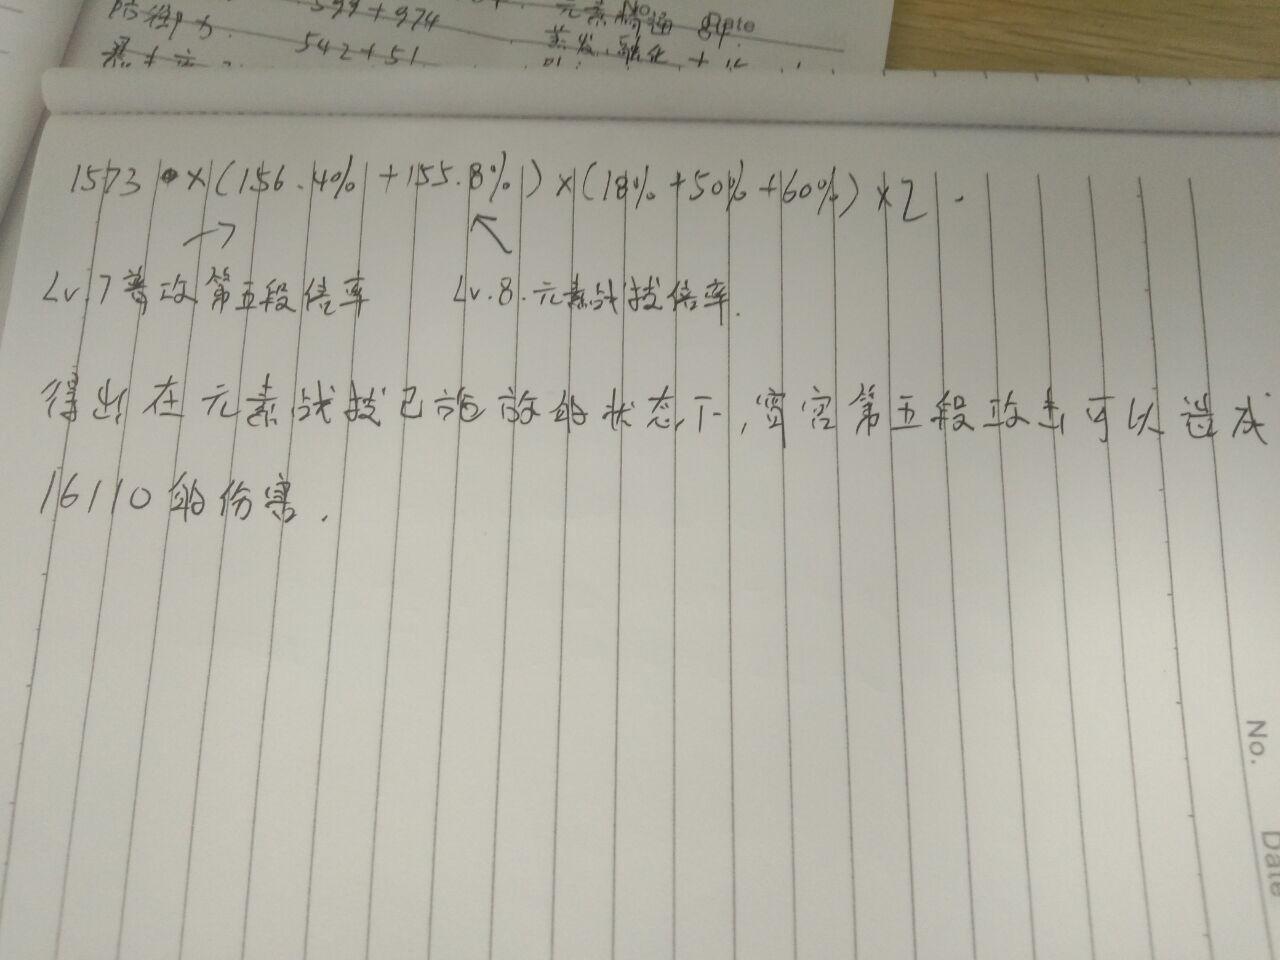 599+974
元素精通 84.
542+51
蒸发.融化
No.
Date
1573 × (156.4% + 155.8%) × (18% + 50% + 60%) × 2.
Lv.7普攻第五段倍率 Lv.8.元素战技倍率.
得出在元素战技已施放的状态下,宵宫第五段攻击可以造成
16110的伤害.
No.
Date